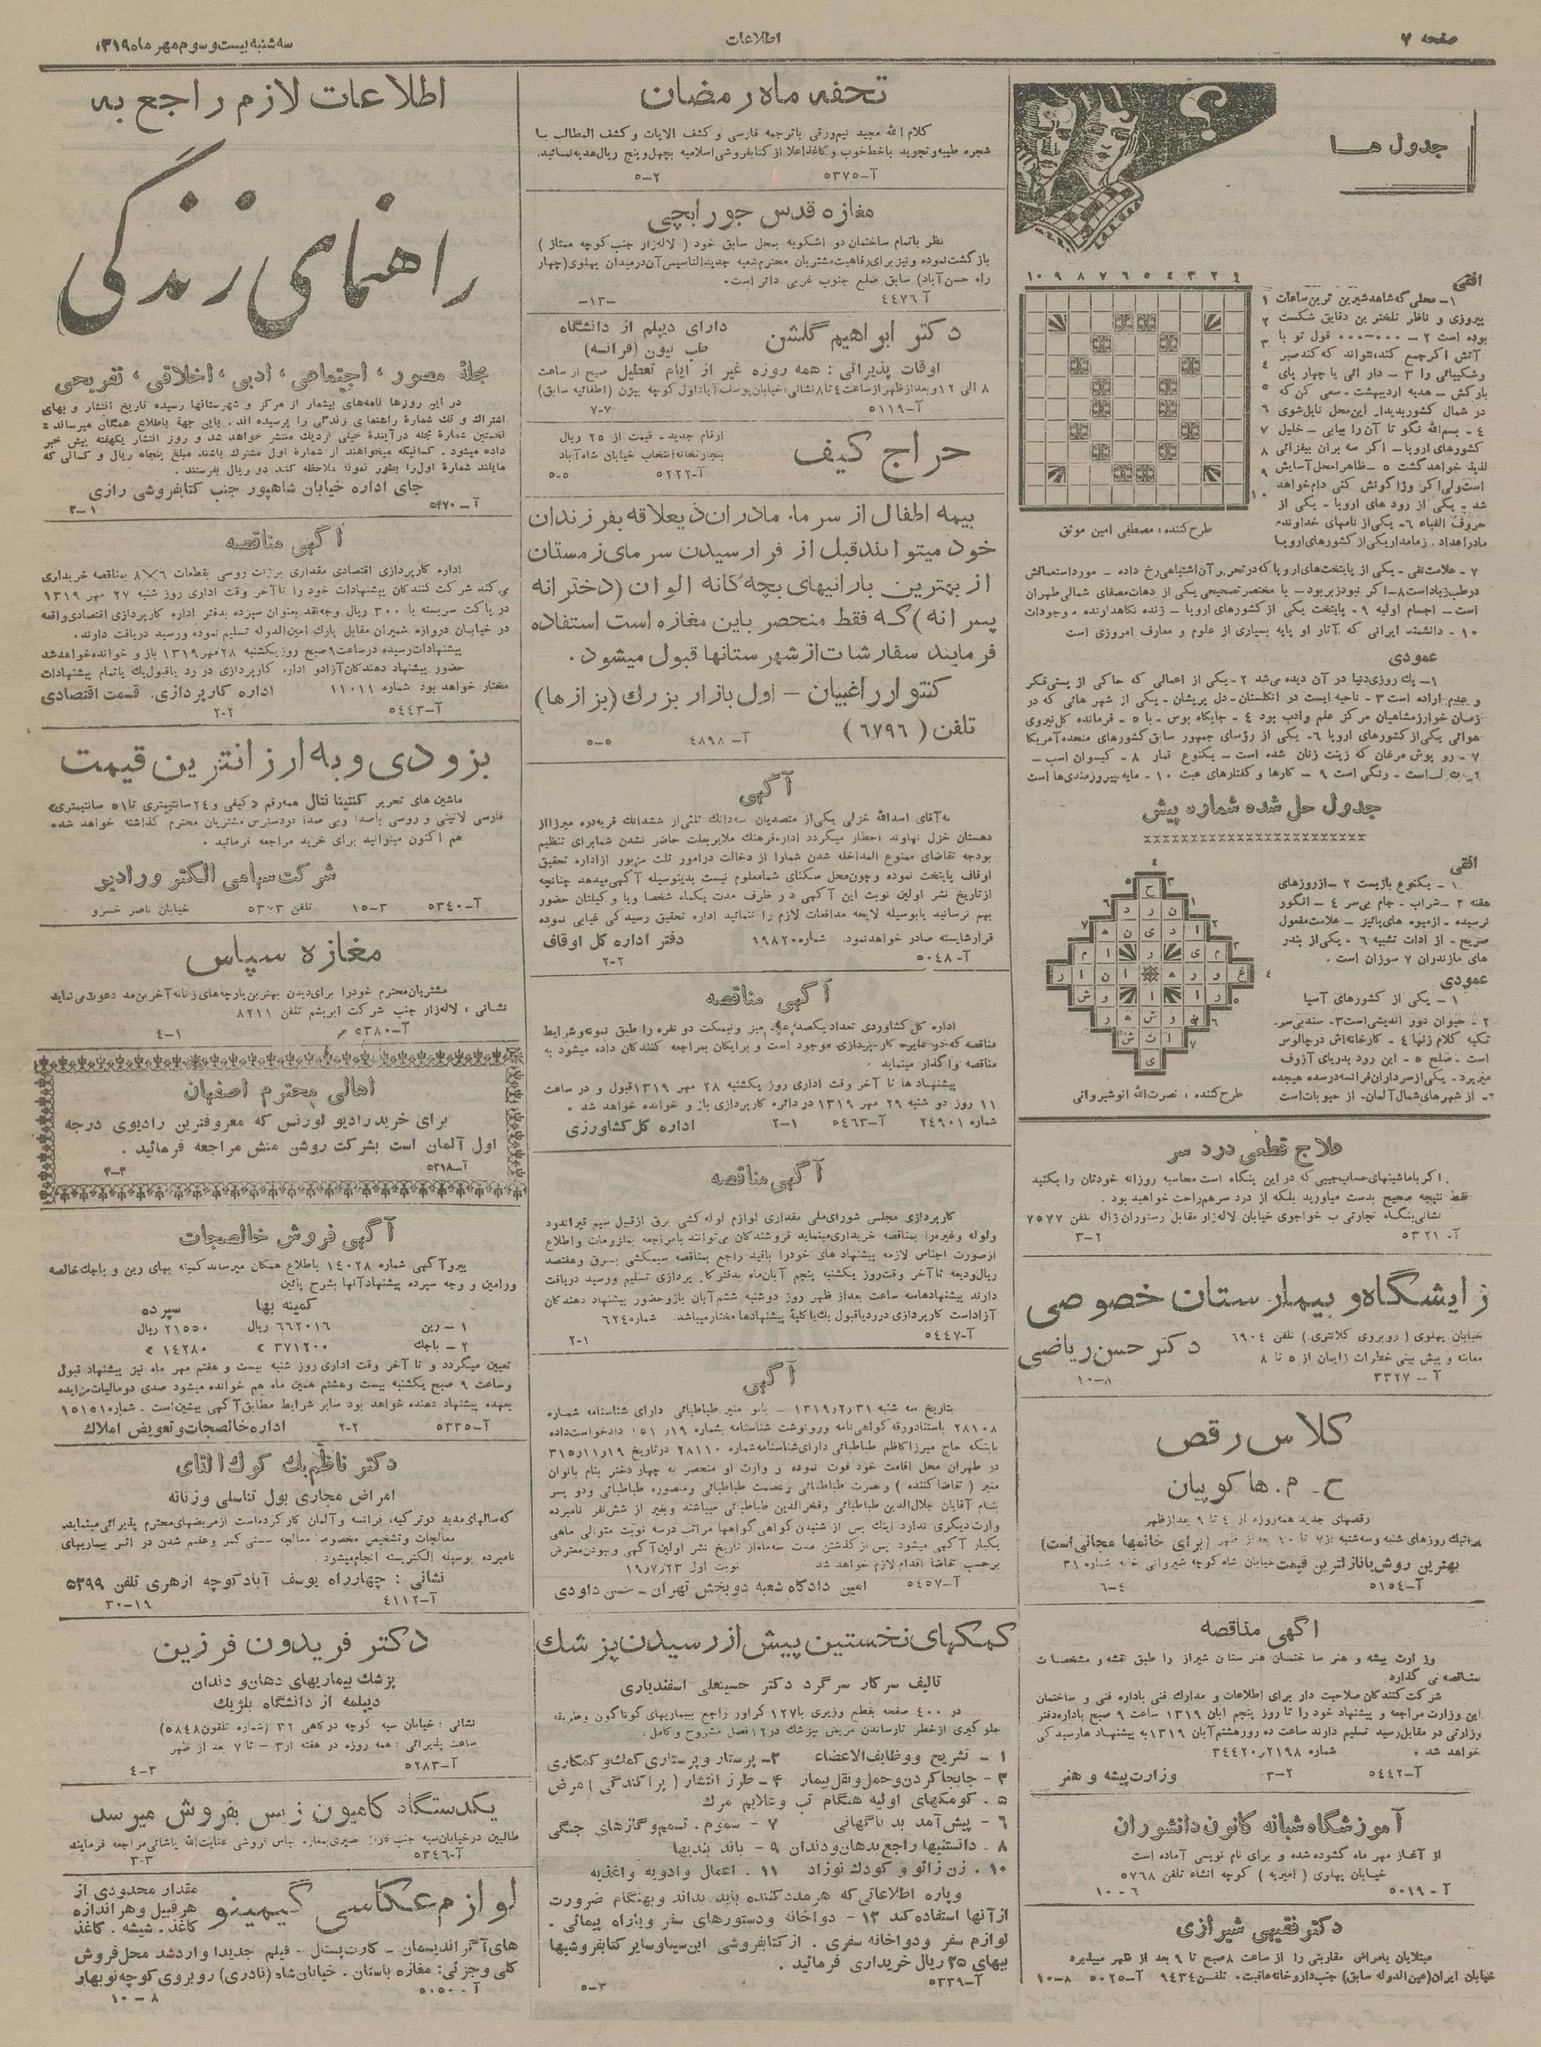 صفحه ۷
اطلاعات
سه‌شنبه بیست و سوم مهر ماه ۱۳۱۹
جدول ها
افقی
۱- محلی که شاهد شیرین ترین ساعات
پیروزی و ناظر تلخترین دقایق شکست
بوده است ۲ - قول تو با
آتش اگر جمع کند، نتواند که کند صبر
وشکیبائی را ۳ - دار ائی یا چهار پای
بارکش - هدیه اردیبهشت - سمی کن که
در شمال کشور پدیدار این محل نایل شوی
۴ - بسم‌الله نگو تا آن را بیابی - خلیل
کشورهای اروپا - اگر سه بر آن بیفزائی
لذیذ خواهد گشت ۵ - ظاهرا محل آسایش
است ولی اگر وارگونش کنی دام خواهد
شد - یکی از رود های اروپا - یکی از
حروف الفباء ۶ - یکی از نامهای خداوند -
مادر اهداد. زمامدار یکی از کشورهای اروپا
طرح کننده : مصطفی امین موثق
۷ - علامت نفی - یکی از پایتخت‌های اروپا که در تحریر آن اشتباهی رخ داده - مورد استعمالش
در طب زیاد است ۸ - اگر نبود زیر بود - با مختصر تصحیحی یکی از دهات مصفای شمالی طهران
است - اجسام اولیه ۹ - پایتخت یکی از کشورهای اروپا - زنده نگاهدارنده موجودات
۱۰ - دانشمند ایرانی که آثار او پایه بسیاری از علوم و معارف امروزی است
عمودی
۱- یک روزی دنیا در آن دیده می‌شد ۲ - یکی از اعمالی که حاکی از پستی فکر
و عدم اراده است ۳ - ناحیه ایست در انگلستان - دل پریشان - یکی از شهر هائی که در
زمان خوارزمشاهیان مرکز علم و ادب بود ۴ - جایگاه بوس - با ۵ - فرمانده کل نیروی
هوائی یکی از کشورهای اروپا ۶ - یکی از رؤسای جمهور سابق کشورهای متحده آمریکا
۷ - رو پوش مرغان که زینت زنان شده است - یکنوع قمار ۸ - کیسوان اسب -
است - رنگی است ۹ - کارها و گفتارهای عبث ۱۰ - مایه پیروزمندی‌ها است
جدول حل شده شماره پیش
افقی
۱ - یکنوع بازیست ۲ - از روزهای
هفته ۳ - شراب - جام بی سر ۴ - انگور
نرسیده - از میوه های پائیز - علامت مفعول
صریح - از ادات تشبیه ۶ - یکی از بندر
های مازندران ۷ سوزان است .
عمودی
۱ - یکی از کشورهای آسیا
۲ - حیوان دور اندیشی است ۳ - سندبی سر.
تکیه کلام زنها ۴ - کارخانه‌اش در چالوس
است - ضلع ۵ - این رود بدریای آزوف
میریزد - یکی از سرداران فرانسه در سده هیجده
- از شهرهای شمال آلمان - از حبوبات است
طرح کننده : نصرت‌الله انوشیروانی
علاج قطعی درد سر
اگر با ماشینهای حساب جیبی که در این بنگاه است محاسبه روزانه خودتان را بکنید
فقط نتیجه صحیح بدست میاورید بلکه از درد سر هم راحت خواهید بود .
نشانی بنگاه تجارتی ب خواجوی خیابان لاله‌زار مقابل رستوران ژاله تلفن ۷۵۷۷
آ- ۵۳۲۱ ۲-۳
زایشگاه و بیمارستان خصوصی
خیابان پهلوی ( روبروی کلانتری ) تلفن ۶۹۰۴
معاینه و پیش بینی خطرات زایمان از ۵ تا ۸
دکتر حسن ریاضی
آ - ۳۳۲۷ ۸-۱۰
کلاس رقص
ح - م. هاکوپیان
رقصهای جدید همه‌روزه از ٤ تا ۹ بعدازظهر
روزهای شنبه و سه‌شنبه از ۷ تا ۱۰ بعد از ظهر (برای خانمها مجانی است)
بهترین روش با نازلترین قیمت خیابان شاه کوچه شیروانی خانه شماره ۳۱
آ-۵۱۵۴ ۴-۶
آگهی مناقصه
وزارت پیشه و هنر ساختمان هنرستان شیراز را طبق نقشه و مشخصات
بمناقصه می گذارد
شرکت کنندگان صلاحیت دار برای اطلاعات و مدارک فنی باداره فنی و ساختمان
این وزارت مراجعه و پیشنهاد خود را تا روز پنجم آبان ۱۳۱۹ ساعت ۹ صبح باداره دفتر
وزارتی در مقابل رسید تسلیم دارند ساعت ده روز هشتم آبان ۱۳۱۹ به پیشنهاد ها رسیدگی
خواهد شد . شماره ۳۴۴۲۰٫۲۱۹۸
آ-۵۴۴۲ ۲-۳ وزارت پیشه و هنر
آموزشگاه شبانه کانون دانشوران
از آغاز مهر ماه گشوده شده و برای نام نویسی آماده است
خیابان پهلوی ( امیریه ) کوچه انشاء تلفن ۵۷۶۸
آ- ۵۰۱۹ ۶-۱۰
دکتر فقیهی شیرازی
مبتلایان بامراض مقاربتی را از ساعت ۸ صبح تا ۹ بعد از ظهر میپذیرد
خیابان ایران (عین‌الدوله سابق) جنب داروخانه عاقبت. تلفن ۹۴۳۴ آ-۵۰۲۵ ۸-۱۰
تحفه ماه رمضان
کلام الله مجید نیم‌ورقی باترجمه فارسی و کشف الایات و کشف المطالب بـا
شجره طیبه و تجوید باخط خوب و کاغذ اعلا از کتابفروشی اسلامیه بچهل و پنج ریال هدیه نمائید.
آ-۵۳۷۵ ۲-۵
مغازه قدس جورابچی
نظر باتمام ساختمان دو اشکوبه بمحل سابق خود ( لاله‌زار جنب کوچه ممتاز )
بازگشت نموده و نیز برای رفاهیت مشتریان محترم شعبه جدیدالتاسیس آن در میدان پهلوی (چهار
راه حسن آباد) سابق ضلع جنوب غربی دائر است.
آ ۴۴۷۶ -۱۳-
دکتر ابراهیم گلشن
دارای دیپلم از دانشگاه
طب نیون (فرانسه)
اوقات پذیرائی : همه روزه غیر از ایام تعطیل صبح از ساعت
۸ الی ۱۲ و بعدازظهر از ساعت ٤ تا ۸ نشانی: خیابان یوسف آباد اول کوچه بیژن (اطفائیه سابق)
آ-۵۱۱۹ ۷-۷
حراج کیف
ارقام جدید - قیمت از ۲۵ ریال
بتجارتخانه انتخاب خیابان شاه‌آباد
آ-۵۲۲۲ ۵-۵
بیمه اطفال از سرما. مادران ذیعلاقه بفرزندان
خود میتوانند قبل از فرارسیدن سرمای زمستان
از بهترین بارانیهای بچه‌گانه الوان (دخترانه
پسرانه) که فقط منحصر باین مغازه است استفاده
فرمایند سفارشات از شهرستانها قبول میشود.
کنتوار راغبیان - اول بازار بزرگ (بزازها)
تلفن ( ۶۷۹۶ ) آ- ۴۸۹۸ ۵-۵
آگهی
به آقای اسدالله خزلی یکی از متصدیان سه‌دانک ثلثی از ششدانک قریه دره میرزا از
دهستان خزل نهاوند اخطار میگردد اداره فرهنگ ملایر بعلت حاضر نشدن شما برای تنظیم
بودجه تقاضای ممنوع المداخله شدن شما را از دخالت در امور ثلث مزبور از اداره تحقیق
اوقاف پایتخت نموده و چون محل سکنای شما معلوم نیست بدینوسیله آگهی میدهد چنانچه
از تاریخ نشر اولین نوبت این آگهی در ظرف مدت یکماه شخصا ویا وکیلتان حضور
بهم نرسانید یا بوسیله لایحه مدافعات لازم را ننمائید اداره تحقیق رسیدگی غیابی نموده
قرار شایسته صادر خواهد نمود. شماره ۱۹۸۲۰ دفتر اداره کل اوقاف
آ- ۵۰۴۸ ۲-۲
آگهی مناقصه
اداره کل کشاوردی تعداد یکصد میز و نیمکت دو نفره را طبق نمونه و شرایط
مناقصه که در دایره کارپردازی موجود است و برایگان بمراجعه کنندگان داده میشود به
مناقصه واگذار مینماید
پیشنهاد ها تا آخر وقت اداری روز یکشنبه ۲۸ مهر ۱۳۱۹ قبول و در ساعت
۱۱ روز دو شنبه ۲۹ مهر ۱۳۱۹ در دائره کارپردازی باز و خوانده خواهد شد .
شماره ۲۴۹۰۱ آ-۵۴۶۳ ۱-۲ اداره کل کشاورزی
آگهی مناقصه
کارپردازی مجلس شورای ملی مقداری لوازم لوله کشی برق از قبیل سیم قیر اندود
و لوله و غیره را بمناقصه خریداری مینماید فروشندگان می‌توانند بامراجعه بملزومات و اطلاع
از صورت اجناس لازمه پیشنهاد های خود را باقید راجع بمناقصه سیمکشی بـرق و هفتصد
ریال ودیعه تا آخر وقت روز یکشنبه پنجم آبان‌ماه بدفتر کارپردازی تسلیم و رسید دریافت
دارند پیشنهادها سه ساعت بعد از ظهر روز دوشنبه ششم آبان باز و حضور پیشنهاد دهندگان
آزاد است کارپردازی در رد یا قبول یک یا کلیه پیشنهادها مختار میباشد. شماره ۶۲۴
آ-۵۴۴۷ ۱-۲
آگهی
بتاریخ سه شنبه ۱۳۱۹/۲/۳۱ - بانو منیر طباطبائی دارای شناسنامه شماره
۲۸۱۰۸ باستناد ورقه گواهی نامه و رونوشت شناسنامه بشماره دادخواست داده
باینکه حاج میرزا کاظم طباطبائی دارای شناسنامه شماره ۲۸۱۱۰ در تاریخ ۳۱۵/۱۱/۱۹
در طهران محل اقامت خود فوت نموده و وارث او منحصر به چهار دختر بنام بانوان
منیر ( تقاضا کننده ) و نصرت طباطبائی و عصمت طباطبائی و منصوره طباطبائی و دو پسر
بنام آقایان جلال‌الدین طباطبائی و فخرالدین طباطبائی میباشند و بغیر از شش نفر نامبرده
وارث دیگری ندارد اینک پس از شنیدن گواهی گواهها مراتب در سه نوبت متوالی ماهی
یکبار آگهی میشود پس از گذشتن مدت سه ماه از تاریخ نشر اولین آگهی و نبودن معترض
برحسب تقاضا اقدام لازم خواهد شد . نوبت اول ۱۹/۷/۲۳
آ-۵۴۵۷ امین دادگاه شعبه دو بخش تهران - حسن داودی
کمکهای نخستین پیش از رسیدن پزشک
تالیف سرکار سرگرد دکتر حسینعلی اسفندیاری
در ۴۰۰ صفحه بقطع وزیری با ۱۲۷ گراور راجع ببیماریهای گوناگون وطریقه
جلوگیری از خطر تا رساندن مریض بپزشک در ۱۲ فصل مشروح و کامل :
۱ - تشریح و وظایف‌الاعضاء ۲ - پرستار و پرستاری کمک و کمکاری
۳ - جابجا کردن و حمل و نقل بیمار ۴ - طرز انتشار ( پراکندگی ) مرض
۵ . کومکهای اولیه هنگام تب و علایم مرگ
۶ - پیش آمد بد ناگهانی ۷ - سموم . تسمم و گازهای جنگی
۸ - دانستنیها راجع بدهان و دندان ۹ - باند بندیها
۱۰ . زن زائو و کودک نوزاد ۱۱ . اعمال و ادویه و اغذیه
و پاره اطلاعاتی که هر مددکننده باید بداند و بهنگام ضرورت
از آنها استفاده کند ۱۲ - دواخانه و دستورهای سفر و پیاده پیمائی .
لوازم سفر و دواخانه سفری . از کتابفروشی ابن سینا و سایر کتابفروشیها
بهای ۲۵ ریال خریداری فرمائید .
آ-۵۳۳۹ ۳-۵
اطلاعات لازم راجع به
راهنمای زندگی
مجله مصور ، اجتماعی ، ادبی ، اخلاقی ، تفریحی
در این روزها نامه‌های بیشمار از مرکز و شهرستانها رسیده تاریخ انتشار و بهای
اشتراک و تک شماره راهنمای زندگی را پرسیده اند. باین جهة باطلاع همگان میرساند :
نخستین شماره مجله درآیندهٔ خیلی نزدیک منتشر خواهد شد و روز انتشار یکهفته پیش خبر
داده میشود . کسانیکه میخواهند از شماره اول مشترک باشند مبلغ پنجاه ریال و کسانی که
مایلند شماره اول را بطور نمونه ملاحظه کنند دو ریال بفرستند .
جای اداره خیابان شاهپور جنب کتابفروشی رازی
آ- ۵۴۷۰ ۱-۲
آگهی مناقصه
اداره کارپردازی اقتصادی مقداری برزنت روسی بقطعات ۶×۸ بمناقصه خریداری
می‌کند شرکت کنندگان پیشنهادات خود را تا آخر وقت اداری روز شنبه ۲۷ مهر ۱۳۱۹
در پاکت سربسته با ۳۰۰ ریال وجه نقد بعنوان سپرده بدفتر اداره کارپردازی اقتصادی واقعه
در خیابان دروازه شمیران مقابل پارک امین‌الدوله تسلیم نموده و رسید دریافت دارند .
پیشنهادات رسیده در ساعت ۹ صبح روز یکشنبه ۲۸ مهر ۱۳۱۹ باز و خوانده خواهد شد
حضور پیشنهاد دهندگان آزاد و اداره کارپردازی در رد یا قبول یک یا تمام پیشنهادات
مختار خواهد بود شماره ۱۱۰۱۱ اداره کارپردازی. قسمت اقتصادی
آ-۵۴۴۳ ۲-۲
بزودی و به ارزانترین قیمت
ماشین های تحریر کنتینانتال همه رقم (کیفی و ۲۴ سانتیمتری تا ۵۱ سانتیمتری)
فارسی لاتینی و روسی باصدا و بی صدا در دسترس مشتریان محترم گذاشته خواهد شد
هم اکنون میتوانید برای خرید مراجعه فرمائید .
شرکت سهامی الکتر و رادیو
آ-۵۳۴۰ ۳-۱۵ تلفن ۵۳۷۳ خیابان ناصر خسرو
مغازه سپاس
مشتریان محترم خود را برای دیدن بهترین پارچه های زنانه آخرین مد دعوت می نماید
نشانی ، لاله‌زار جنب شرکت ابریشم تلفن ۸۲۱۱
آ-۵۳۸۰ ۱-۴
اهالی محترم اصفهان
برای خرید رادیو لورنس که معروفترین رادیوی درجه
اول آلمان است بشرکت روشن منش مراجعه فرمائید .
آ-۵۲۹۸ ۳-۴
آگهی فروش خالصجات
پیرو آگهی شماره ۱۴۰۲۸ باطلاع همگان میرساند کمینه بهای رین و باجک خالصه
ورامین و وجه سپرده پیشنهاد آنها بشرح پائین
کمینه بها سپرده
۱ - رین ۶۶۲۰۱۶ ریال ۲۱۵۵۰ ریال
۲ - باجک ۳۷۱۲۰۰ » ۱۴۲۸۰ »
تعیین میگردد و تا آخر وقت اداری روز شنبه بیست و هفتم مهر ماه نیز پیشنهاد قبول
و ساعت ۹ صبح یکشنبه بیست و هشتم همین ماه هم خوانده میشود صدی دو مالیات مزایده
بعهده پیشنهاد دهنده خواهد بود سایر شرایط مطابق آگهی پیشین است . شماره ۱۵۱۵۱
آ-۵۳۳۵ ۲-۲ اداره خالصجات و تعویض املاک
دکتر ناظم بک کوک آلتای
امراض مجاری بول تناسلی و زنانه
که سالهای مدید در ترکیه، فرانسه و آلمان کار کرده است از مریضهای محترم پذیرائی مینماید
معالجات و تشخیص مخصوص، معالجه سستی کمر و عقیم شدن در اثر بیماریهای
نامبرده بوسیله الکتریسته انجام میشود
نشانی : چهارراه یوسف آباد کوچه ازهری تلفن ۵۳۹۹
آ-۴۱۱۲ ۱۹-۳۰
دکتر فریدون فرزین
پزشک بیماریهای دهان و دندان
دیپلمه از دانشگاه بلژیک
نشانی : خیابان سپه کوچه درگاهی ۳۲ (شماره تلفون ۵۸۴۸)
ساعت پذیرائی : همه روزه در هفته از ۳ - تا ۷ بعد از ظهر
آ-۵۲۸۳ ۳-۴
یکدستگاه کامیون زیس بفروش میرسد
طالبین در خیابان سپه جنب مغازه لباس فروشی عنایت‌الله باشائی مراجعه فرمایند
آ-۵۳۴۶ ۳-۳
لوازم عکاسی گیمینو
مقدار محدودی از
هر قبیل و هر اندازه
کاغذ. شیشه . کاغذ
های آگراندیسمان - کارت پستال - فیلم جدیدا وارد شد محل فروش
کلی و جزئی: مغازه باستان . خیابان شاه (نادری) روبروی کوچه نوبهار
آ. ۵۰۵۰ ۸-۱۰